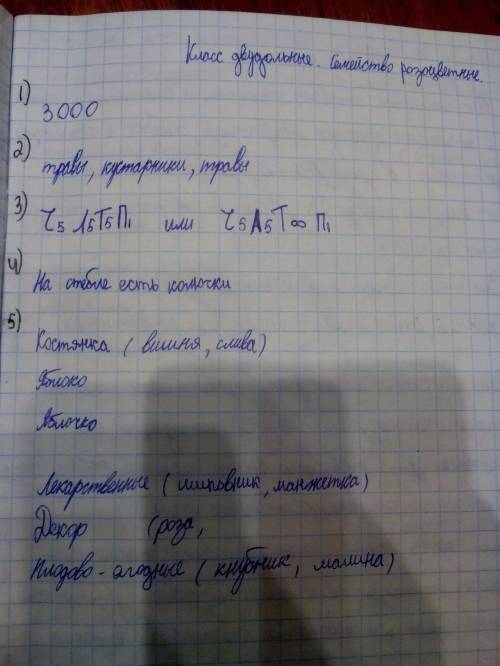 Класс двудольные. Семейство розоцветные.
1) 3000
2) травы, кустарники, травы
3) Ч5 Л5Т5П1 или Ч5Л5Т∞П1
4) На стебле есть колючки
5) Костянка (вишня, слива)
Яблоко
Яблочко
Лекарственные (шиповник, манжетка)
Декор (роза,
Плодово-ягодные (клубник, малина)